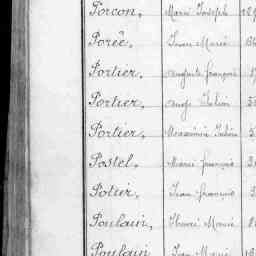 Porcon, Marie Joseph
Porée, Jean Marie
Portier, Auguste françois
Portier, Ange Julien
Portier,
Postel, Marie françois
Potier, Jean françois
Poulain, Henri Marie
Poulain Jean Marie